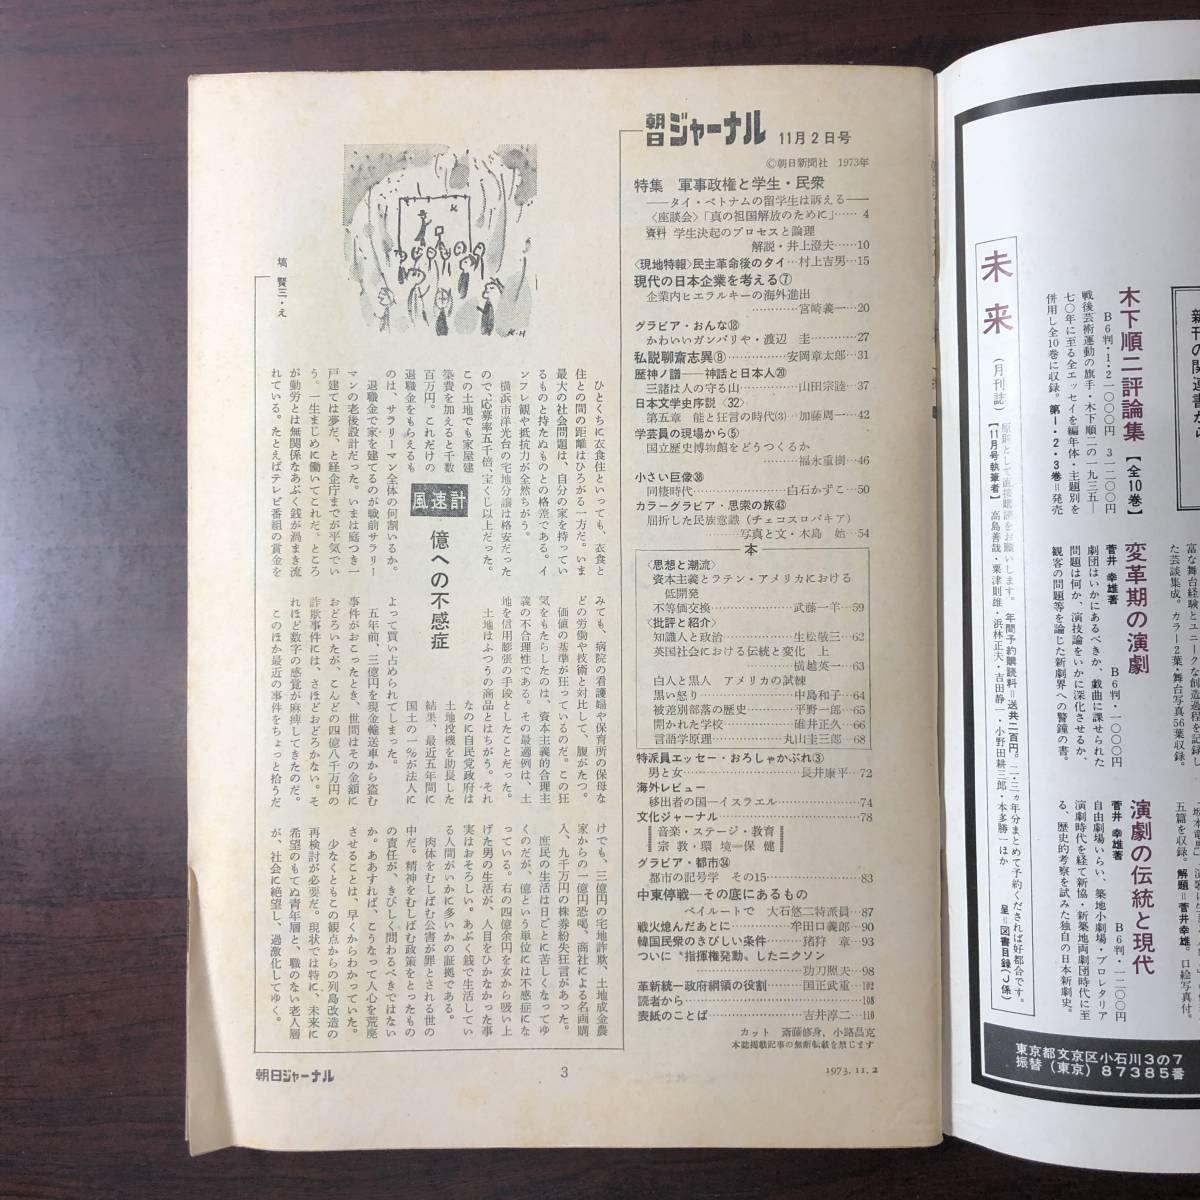 朝日ジャーナル 11月2日号
©朝日新聞社 1973年
特集 軍事政権と学生・民衆
――タイ・ベトナムの留学生は訴える――
〈座談会〉「真の祖国解放のために」…… 4
資料 学生決起のプロセスと論理
解説・井上澄夫……10
〈現地特報〉民主革命後のタイ…村上吉男…15
現代の日本企業を考える⑦
企業内ヒエラルキーの海外進出
…………宮崎義一…20
グラビア・おんな⑱
かわいいガンバリや・渡辺 圭…………27
私説聊斎志異⑨……………安岡章太郎…31
歴神ノ譜――神話と日本人⑳
三諸は人の守る山…………山田宗睦…37
日本文学史序説〈32〉
第五章 能と狂言の時代(3) 加藤周一…42
学芸員の現場から⑤
国立歴史博物館をどうつくるか
…………福永重樹…46
小さい巨像㊳
同棲時代……………白石かずこ…50
カラーグラビア・思索の旅㊸
屈折した民族意識(チェコスロバキア)
……写真と文・木島 始…54
本
〈思想と潮流〉
資本主義とラテン・アメリカにおける
低開発
不等価交換…………武藤一羊…59
〈批評と紹介〉
知識人と政治…………生松敬三…62
英国社会における伝統と変化 上
…………横越英一…63
白人と黒人 アメリカの試練
黒い怒り……………中島和子…64
被差別部落の歴史………平野一郎…65
開かれた学校…………碓井正久…66
言語学原理…………丸山圭三郎…68
特派員エッセー・おろしゃかぶれ③
男と女………………長井康平…72
海外レビュー
移出者の国―イスラエル……………74
文化ジャーナル……………………78
音楽・ステージ・教育
宗教・環境・保健
グラビア・都市㉞
都市の記号学 その15………………83
中東停戦―その底にあるもの
ベイルートで 大石悠二特派員…87
戦火熄んだあとに………牟田口義郎…90
韓国民衆のきびしい条件……猪狩 章…93
ついに“指揮権発動”したニクソン
……………功刀照夫…98
革新統一政府綱領の役割……国正武重…102
読者から……………………108
表紙のことば…………吉井淳二…110
カット 斎藤修身、小路昌克
本誌掲載記事の無断転載を禁じます
1973.11.2
塙 賢三・え
風速計
億への不感症
ひとくちに衣食住といっても、衣食と
住との間の距離はひろがる一方だ。いま
最大の社会問題は、自分の家を持ってい
るものと持たぬものとの格差である。イ
ンフレ観や抵抗力が全然ちがう。
横浜市洋光台の宅地分譲は格安だった
ので、応募率五千倍、宝くじ以上だった。
この土地でも家屋建
築費を加えると千数
百万円。これだけの
退職金をもらえるも
のは、サラリーマン全体の何割いるか。
退職金で家を建てるのが戦前サラリー
マンの老後設計だった。いまは庭つき一
戸建ては夢だ、と経企庁までが平気でい
う。一生まじめに働いてこれだ。ところ
が勤労とは無関係なあぶく銭が渦まき流
れている。たとえばテレビ番組の賞金を
みても、病院の看護婦や保育所の保母な
どの労働や技術と対比して、腹がたつ。
価値の基準が狂っているのだ。この狂
気をもたらしたのは、資本主義的合理主
義の不合理性である。その最適例は、土
地を信用膨張の手段としたことだった。
土地はふつうの商品とはちがう。それ
なのに自民党政府は
土地投機を助長した
結果、最近五年間に
国土の一%が法人に
よって買い占められてしまった。
五年前、三億円を現金輸送車から盗む
事件がおこったとき、世間はその金額に
おどろいたが、こんどの四億八千万円の
詐欺事件には、さほどおどろかない。そ
れほど数字の感覚が麻痺してきたのだ。
このほか最近の事件をちょっと拾うだ
けでも、三億円の宅地詐欺、土地成金農
家からの一億円恐喝、商社による名画購
入、九千万円の株券紛失狂言があった。
庶民の生活は日ごとに苦しくなってゆ
くのだが、億という単位には不感症にな
っている。右の四億余円を女から吸い上
げた男の生活が、人目をひかなかった事
実はおそろしい。あぶく銭で生活してい
る人間がいかに多いかの証拠である。
肉体をむしばむ公害が罪とされる世の
中だ。精神をむしばむ政策をとったもの
の責任が、きびしく問わるべきではない
か。ああすれば、こうなって人心を荒廃
させることは、早くからわかっていた。
少なくともこの観点からの列島改造の
再検討が必要だ。現状では特に、未来に
希望のもてぬ青年層と、職のない老人層
が、社会に絶望し、過激化してゆく。
朝日ジャーナル
3
木下順二評論集【全10巻】
B6判・1・2一〇〇〇円 3一二〇〇円
戦後芸術運動の旗手・木下順二の一九三五―
七〇年に至る全エッセイを編年体・主題別を
併用し全10巻に収録。第1・2・3巻=発売
変革期の演劇
菅井幸雄著 B6判・一〇〇〇円
劇団はいかにあるべきか、戯曲に課せられた
問題は何か、演技論をいかに深化させるか、
観客の問題等を論じた新劇界への警鐘の書。
演劇の伝統と現代
菅井幸雄著 B6判・一二〇〇円
自由劇場いらい、築地小劇場・プロレタリア
演劇時代を経て新協・新築地両劇団時代に至
る、歴史的考察を試みた独自の日本新劇史。
未来
(月刊誌)
原則として直接購読をお願いします。年間予約購読料=送共二百円。二・三ヵ年分まとめて予約くだされば好都合です。
【11月号執筆者】高島善哉・粟津則雄・浜林正夫・吉田静一・小野田耕三郎・本多勝一ほか 呈=図書目録(J係)
東京都文京区小石川3の7
振替(東京)87385番
新刊の関連書から
富な舞台経験とユニークな創造過程を記録し
た芸談集成。カラー2葉・舞台写真56葉収録。
五篇を収録。解題=菅井幸雄。口絵写真付。